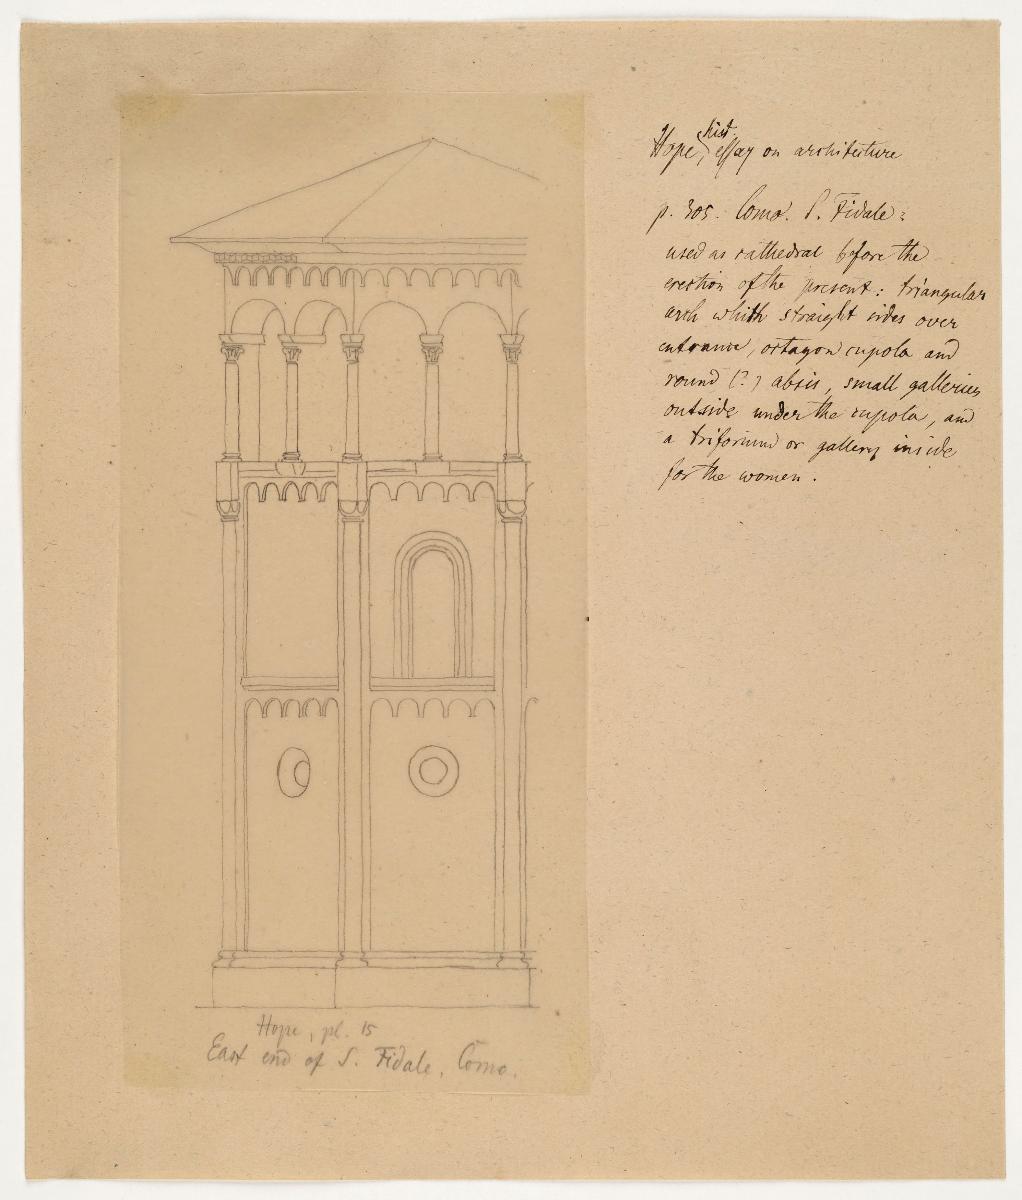 hist.
Hope, essay on architecture
p. 305. Como. S. Fidale:
used as cathedral before the
erection of the present: triangular
arch whith straight sides over
entrance, octagon cupola and
round (?) absis, small galleries
outside under the cupola, and
a triforium or gallery inside
for the women.
Hope, pl. 15
East end of S. Fidale, Como.